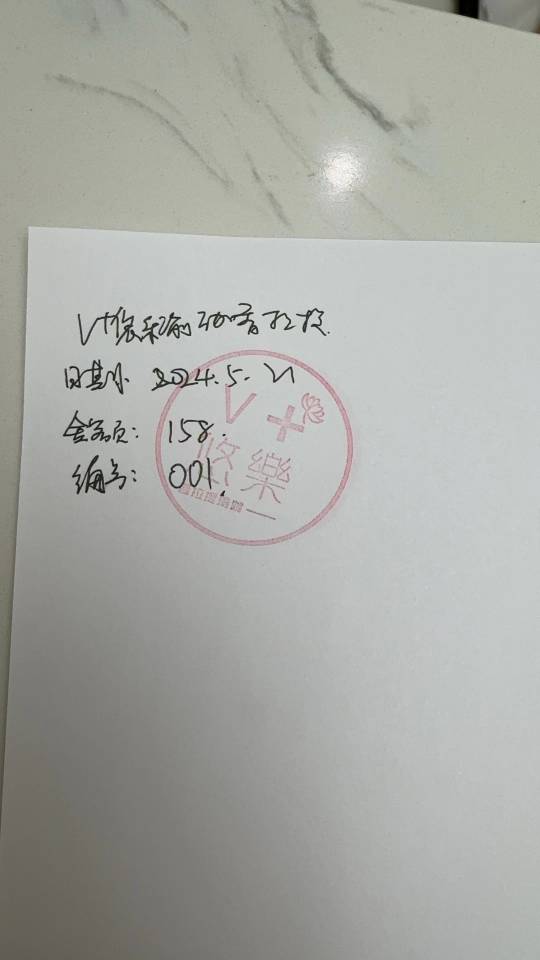 V+悠乐瑜伽普拉提
日期: 2024.5.21
金额: 158.
编号: 001
V+
悠樂
普拉提瑜伽